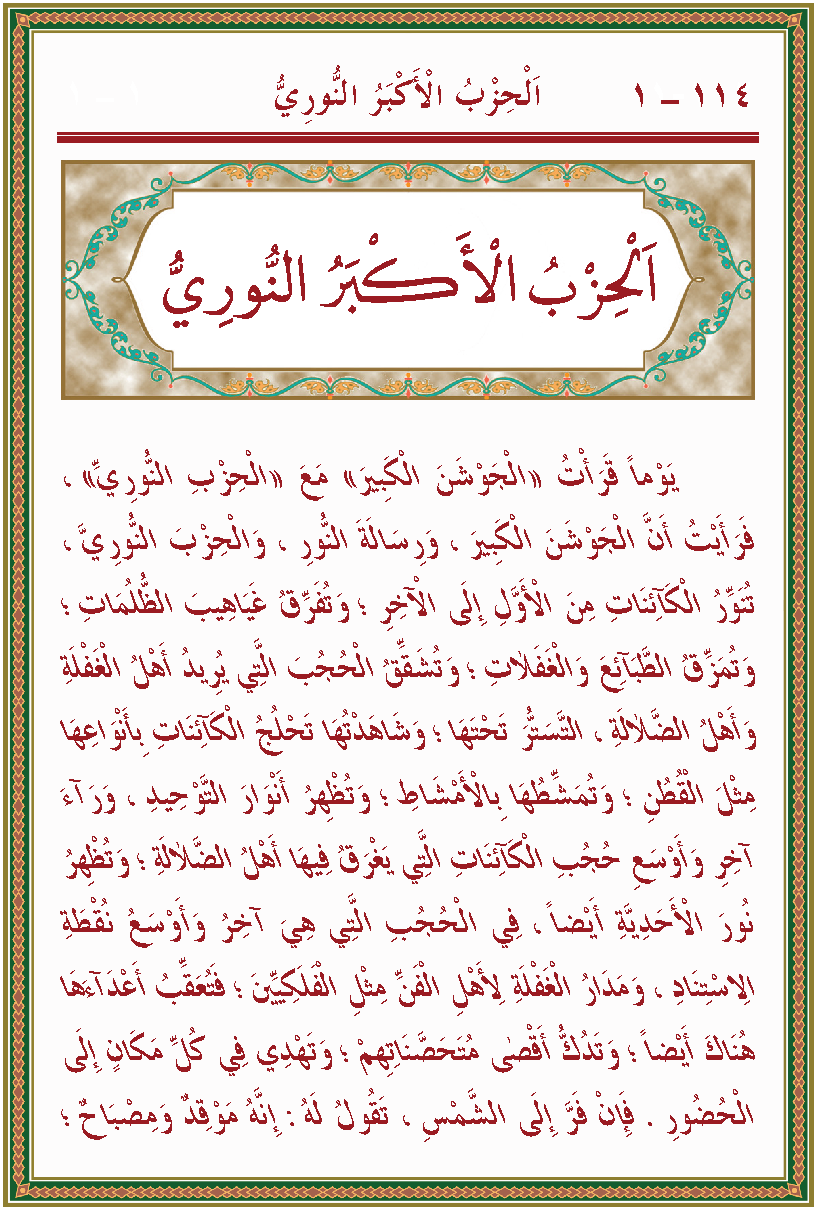 ١١٤ – ١ اَلْحِزْبُ الْأَكْبَرُ النُّورِيُّ
اَلْحِزْبُ الْأَكْبَرُ النُّورِيُّ
يَوْماً قَرَأْتُ «الْجَوْشَنَ الْكَبِيرَ» مَعَ «الْحِزْبِ النُّورِيِّ» ،
فَرَأَيْتُ أَنَّ الْجَوْشَنَ الْكَبِيرَ ، وَرِسَالَةَ النُّورِ ، وَالْحِزْبَ النُّورِيَّ ،
تُنَوِّرُ الْكَآئِنَاتِ مِنَ الْأَوَّلِ إِلَى الْآخِرِ ؛ وَتُفَرِّقُ غَيَاهِيبَ الظُّلُمَاتِ ؛
وَتُمَزِّقُ الطَّبَآئِعَ وَالْغَفَلَاتِ ؛ وَتُشَقِّقُ الْحُجُبَ الَّتِي يُرِيدُ أَهْلُ الْغَفْلَةِ
وَأَهْلُ الضَّلَالَةِ ، التَّسَتُّرَ تَحْتَهَا ؛ وَشَاهَدْتُهَا تَحْلُجُ الْكَآئِنَاتِ بِأَنْوَاعِهَا
مِثْلَ الْقُطُنِ ؛ وَتُمَشِّطُهَا بِالْأَمْشَاطِ ؛ وَتُظْهِرُ أَنْوَارَ التَّوْحِيدِ ، وَرَآءَ
آخِرِ وَأَوْسَعِ حُجُبِ الْكَآئِنَاتِ الَّتِي يَغْرَقُ فِيهَا أَهْلُ الضَّلَالَةِ ؛ وَتُظْهِرُ
نُورَ الْأَحَدِيَّةِ أَيْضاً ، فِي الْحُجُبِ الَّتِي هِيَ آخِرُ وَأَوْسَعُ نُقْطَةِ
الِاسْتِنَادِ ، وَمَدَارُ الْغَفْلَةِ لِأَهْلِ الْفَنِّ مِثْلِ الْفَلَكِيِّينَ ؛ فَتُعَقِّبُ أَعْدَآءَهَا
هُنَاكَ أَيْضاً ؛ وَتَدُكُّ أَقْصٰى مُتَحَصَّنَاتِهِمْ ؛ وَتَهْدِي فِي كُلِّ مَكَانٍ إِلَى
الْحُضُورِ . فَإِنْ فَرَّ إِلَى الشَّمْسِ ، تَقُولُ لَهُ : إِنَّهُ مَوْقِدٌ وَمِصْبَاحٌ ؛